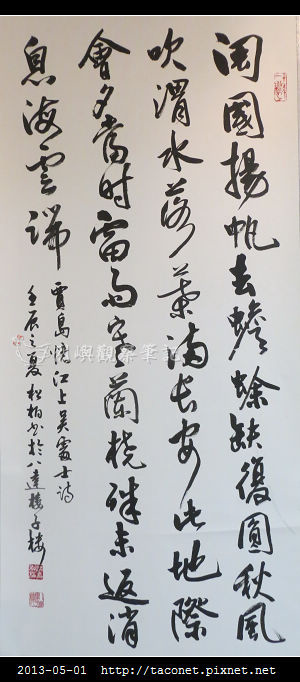 閩國揚帆去蟾蜍缺復圓秋風
吹渭水落葉滿長安此地際
會夕當时雷雨寒蘭橈殊未返消
息海雲端
賈島憶江上吳處士詩
壬辰之夏松柏書於八達樓子樓
嶼觀察筆記
2013-05-01 http://taconet.pixnet.net